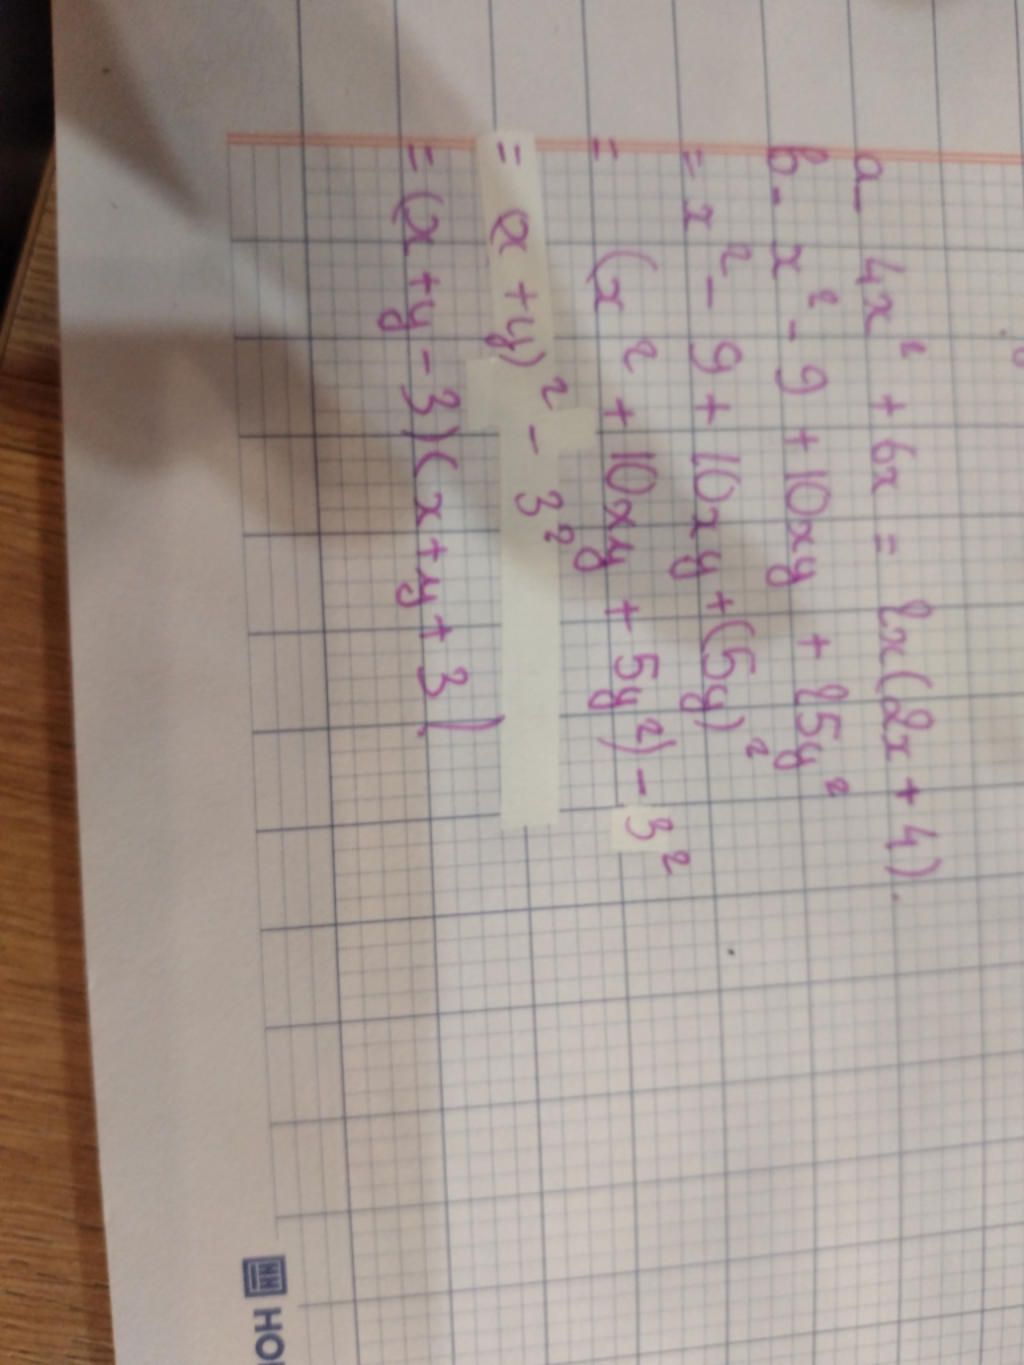 a- 4x² + 6x = 2x(2x + 4).
b- x² - 9 + 10xy + 25y²
= x² - 9 + 10xy + (5y)²
= (x² + 10xy + 5y²) - 3²
= (x + y)² - 3²
= (x + y - 3)(x + y + 3)